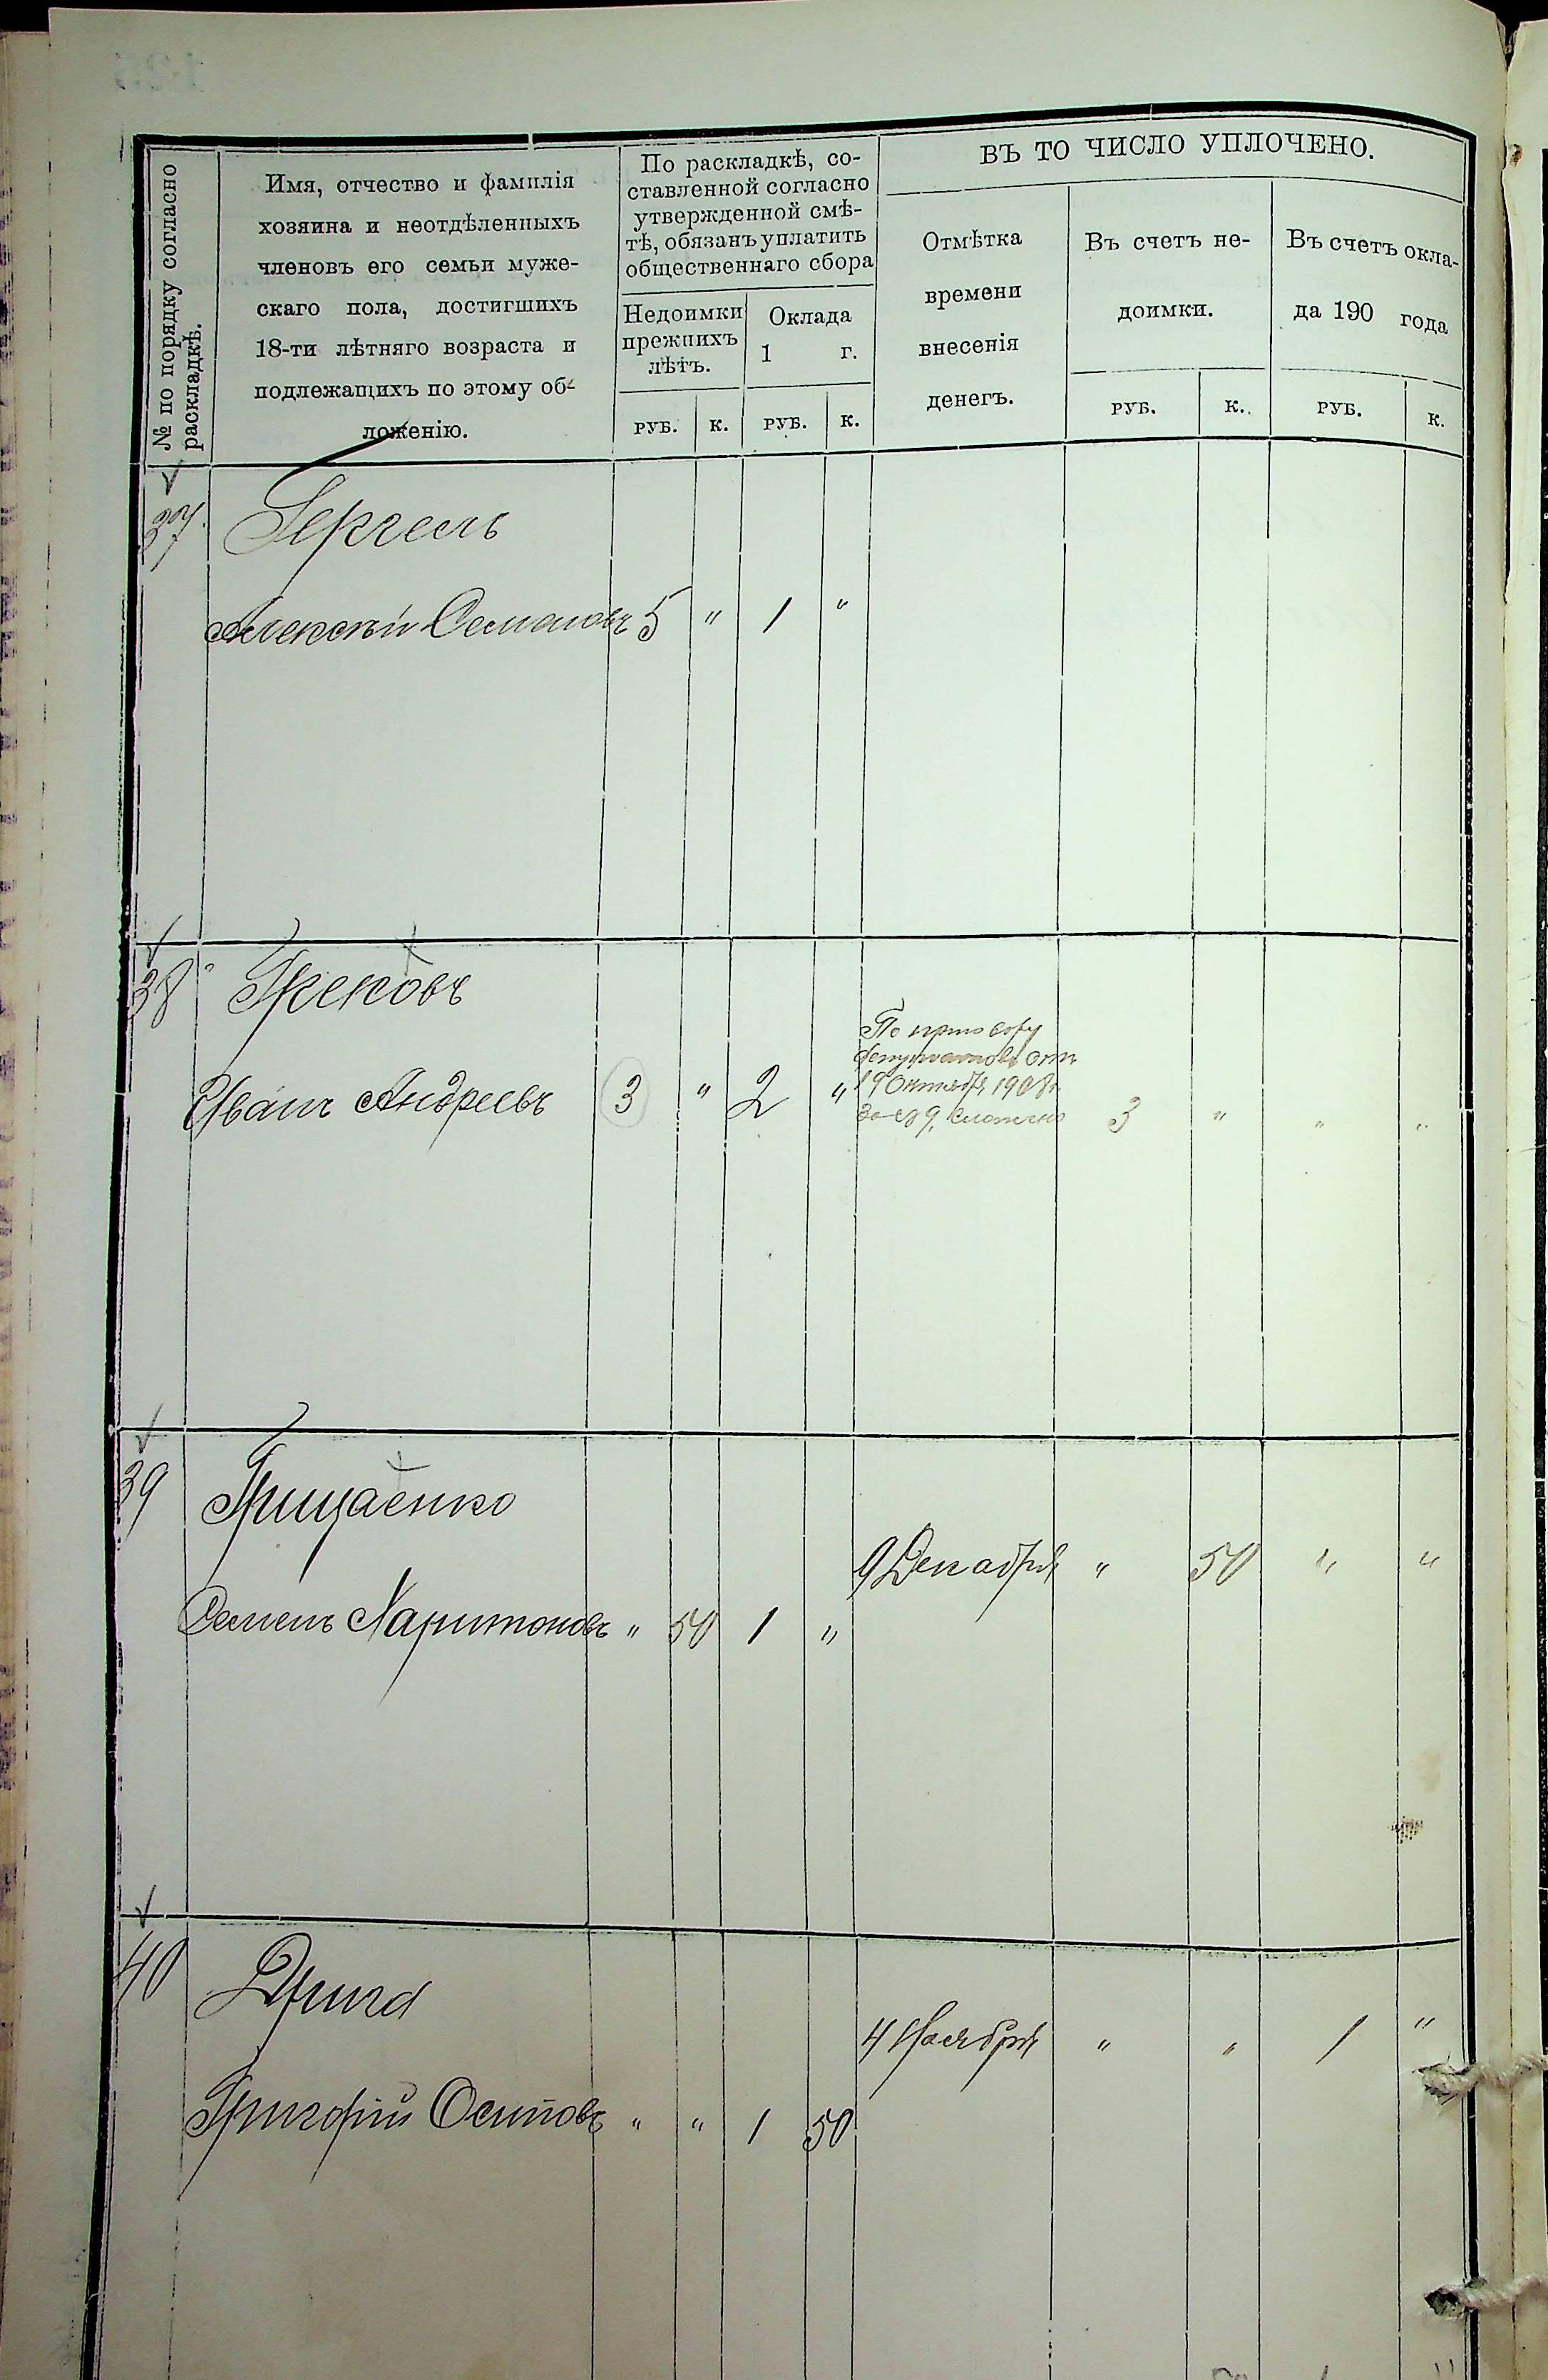 № по порядку согласно
раскладкѣ.
Имя, отчество и фамилія
хозяина и неотдѣленныхъ
членовъ его семьи муже-
скаго пола, достигшихъ
18-ти лѣтняго возраста и
подлежащихъ по этому об-
ложенію.
По раскладкѣ, со-
ставленной согласно
утвержденной смѣ-
тѣ, обязанъ уплатить
общественнаго сбора
Недоимки
прежнихъ
лѣтъ.
Оклада
1 г.
ВЪ ТО ЧИСЛО УПЛОЧЕНО.
Отмѣтка
времени
внесенія
денегъ.
Въ счетъ не-
доимки.
Въ счетъ окла-
да 190 года
РУБ. К. РУБ. К. РУБ. К. РУБ. К.
37 Гергель
Алексѣй Семеновъ 5 " 1 "
38 Грековъ
Иванъ Андреевъ 3 " 2 "
19 Октября 1908 г.
3 " " "
39 Грищаенко
9 Декабря " 50 " "
Семенъ Харитоновъ " 50 1 "
40 Дрига
4 Ноября " " 1 "
Григорій Осиповъ " " 1 50